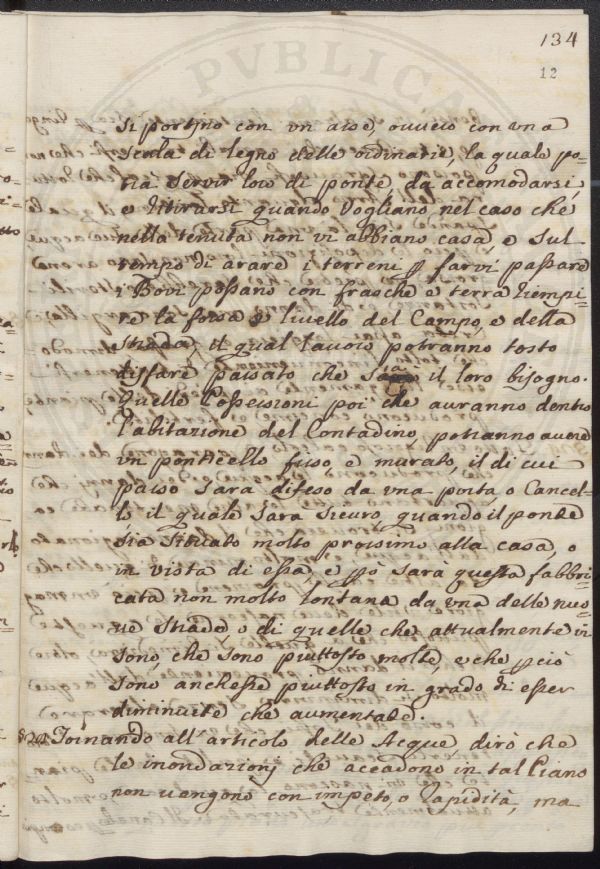 134
12
PVBLICA
si portino con vn asse, ouuero con vna
scala di legno delle ordinarie, la quale po=
trà servir loro di ponte, da accomodarsi,
e ritirarsi quando vogliano, nel caso che
nella tenuta non vi abbiano casa, e sul
tempo di arare i terreni p farvi passare
i Bovi possano con frasche e terra riempi=
re la fossa a livello del Campo, e della
strada, il qual lavoro potranno tosto
disfare passato che sia il loro bisogno.
Quelle Possessioni poi che auranno dentro
l'abitazione del Contadino, potranno avere
vn ponticello fisso e murato, il di cui
passo sarà difeso da vna porta, o Cancel=
lo il quale sarà sicuro quando il ponte
sia situato molto prossimo alla casa, o
in vista di essa, e pciò sarà questa fabbri=
cata non molto lontana da vna delle nuo=
ue strade, o di quelle che attualmente vi
sono, che sono piuttosto molte, e che pciò
sono anchesse piuttosto in grado di esser
diminuite che aumentate.
Tornando all'articolo delle Acque, dirò che
le inondazionj che accadono in tal Piano
non uengono con impeto, o rapidità, ma